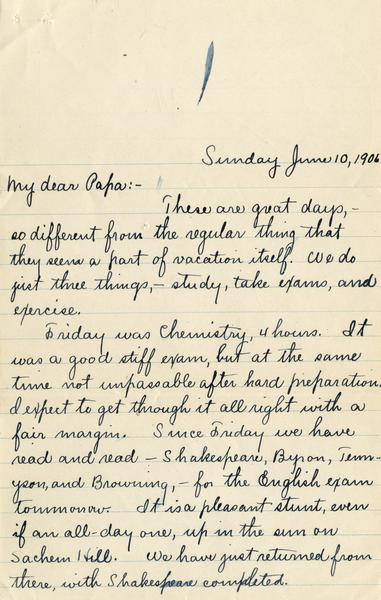 Sunday June 10, 1906
My dear Papa:-
These are great days,-
so different from the regular thing that
they seem a part of vacation itself. We do
just three things,- study, take exams, and
exercise.
Friday was Chemistry, 4 hours. It
was a good stiff exam, but at the same
time not unpassable after hard preparation.
I expect to get through it all right with a
fair margin. Since Friday we have
read and read - Shakespeare, Byron, Tenn-
yson, and Browning, - for the English exam
tommorow. It is a pleasant stunt, even
if an all-day one, up in the sun on
Sachem Hill. We have just returned from
there, with Shakespeare completed.